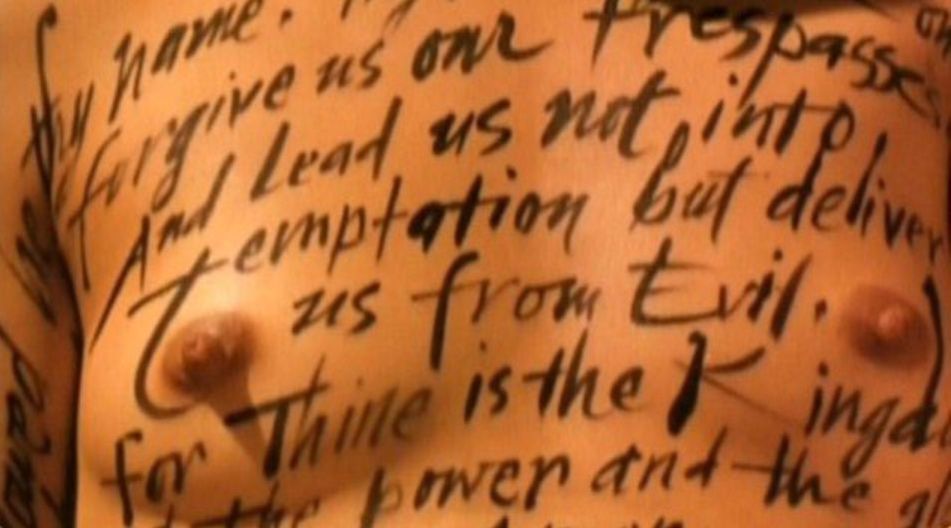 thy name.
forgive us our trespasses
And lead us not into
Temptation but deliver
us from Evil.
for Thine is the Kingd
the power and the gl